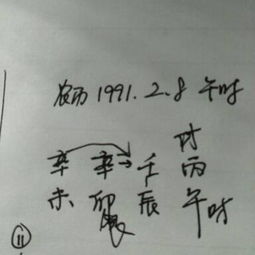 农历1991.2.8 午时
时
辛 辛 壬 丙
未 卯 辰 午时
⑪